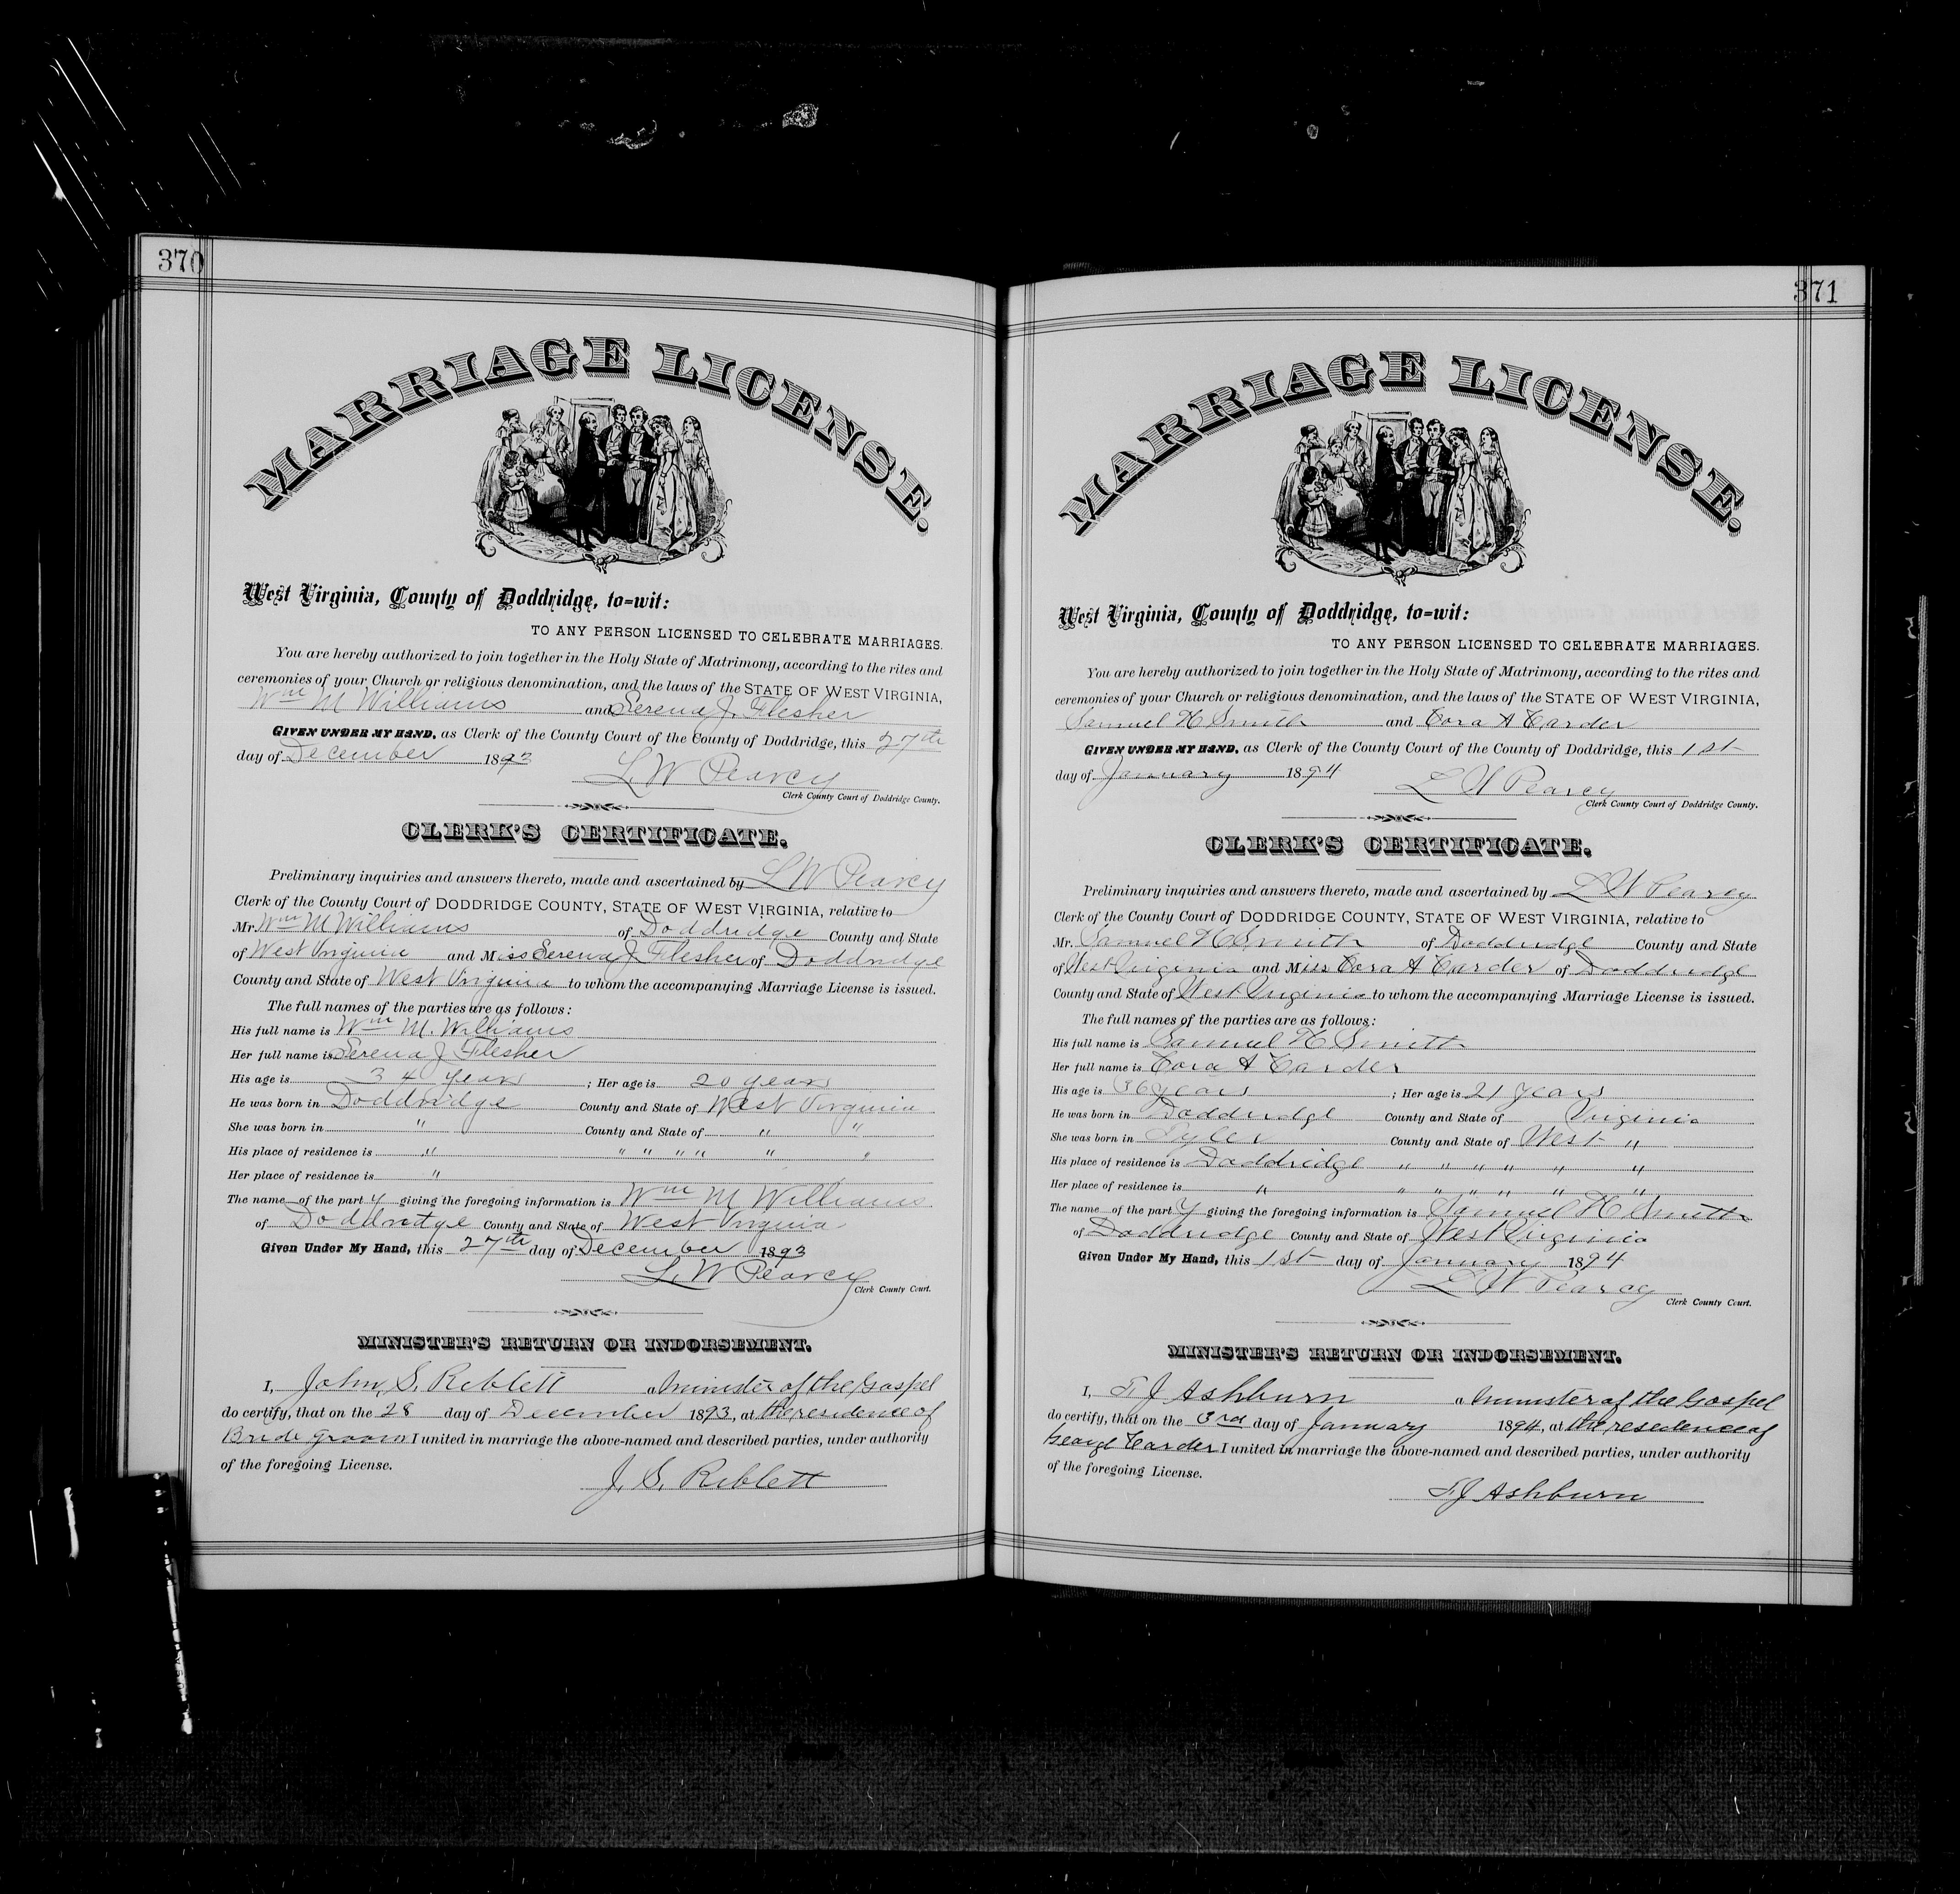 370
MARRIAGE LICENSE.
West Virginia, County of Doddridge, to=wit:
TO ANY PERSON LICENSED TO CELEBRATE MARRIAGES.
You are hereby authorized to join together in the Holy State of Matrimony, according to the rites and
ceremonies of your Church or religious denomination, and the laws of the STATE OF WEST VIRGINIA,
Wm M Williams and Serena J. Flesher
GIVEN UNDER MY HAND, as Clerk of the County Court of the County of Doddridge, this 27th
day of December 1893
L. W Pearcy
Clerk County Court of Doddridge County.
CLERK'S CERTIFICATE.
Preliminary inquiries and answers thereto, made and ascertained by L W Pearcy
Clerk of the County Court of DODDRIDGE COUNTY, STATE OF WEST VIRGINIA, relative to
Mr. Wm M Williams of Doddridge County and State
of West Virginia and Miss Serena J Flesher of Doddridge
County and State of West Virginia to whom the accompanying Marriage License is issued.
The full names of the parties are as follows:
His full name is Wm M. Williams
Her full name is Serena J Flesher
His age is 34 years ; Her age is 20 years
He was born in Doddridge County and State of West Virginia
She was born in " County and State of " "
His place of residence is " " " " " " "
Her place of residence is "
The name of the part y giving the foregoing information is Wm M Williams
of Doddridge County and State of West Virginia
Given Under My Hand, this 27th day of December 1893
L. W Pearcy
Clerk County Court.
MINISTER'S RETURN OR INDORSEMENT.
I, John S. Reblett a minister of the Gospel
do certify, that on the 28 day of December 1893, at the residence of
Bride groom I united in marriage the above-named and described parties, under authority
of the foregoing License.
J. S. Reblett
371
MARRIAGE LICENSE.
West Virginia, County of Doddridge, to=wit:
TO ANY PERSON LICENSED TO CELEBRATE MARRIAGES.
You are hereby authorized to join together in the Holy State of Matrimony, according to the rites and
ceremonies of your Church or religious denomination, and the laws of the STATE OF WEST VIRGINIA,
Samuel H Smith and Cora A Carder
GIVEN UNDER MY HAND, as Clerk of the County Court of the County of Doddridge, this 1st
day of January 1894
L W Pearcy
Clerk County Court of Doddridge County.
CLERK'S CERTIFICATE.
Preliminary inquiries and answers thereto, made and ascertained by L W Pearcy
Clerk of the County Court of DODDRIDGE COUNTY, STATE OF WEST VIRGINIA, relative to
Mr. Samuel H Smith of Doddridge County and State
of West Virginia and Miss Cora A Carder of Doddridge
County and State of West Virginia to whom the accompanying Marriage License is issued.
The full names of the parties are as follows:
His full name is Samuel H Smith
Her full name is Cora A Carder
His age is 36 years ; Her age is 21 years
He was born in Doddridge County and State of Virginia
She was born in Tyler County and State of West "
His place of residence is Doddridge " " " " " "
Her place of residence is " " " " " " "
The name of the part y giving the foregoing information is Samuel H Smith
of Doddridge County and State of West Virginia
Given Under My Hand, this 1st day of January 1894
L W Pearcy
Clerk County Court.
MINISTER'S RETURN OR INDORSEMENT.
I, T. J Ashburn a minister of the Gospel
do certify, that on the 3rd day of January 1894, at the residence of
George Carder I united in marriage the above-named and described parties, under authority
of the foregoing License.
T. J Ashburn